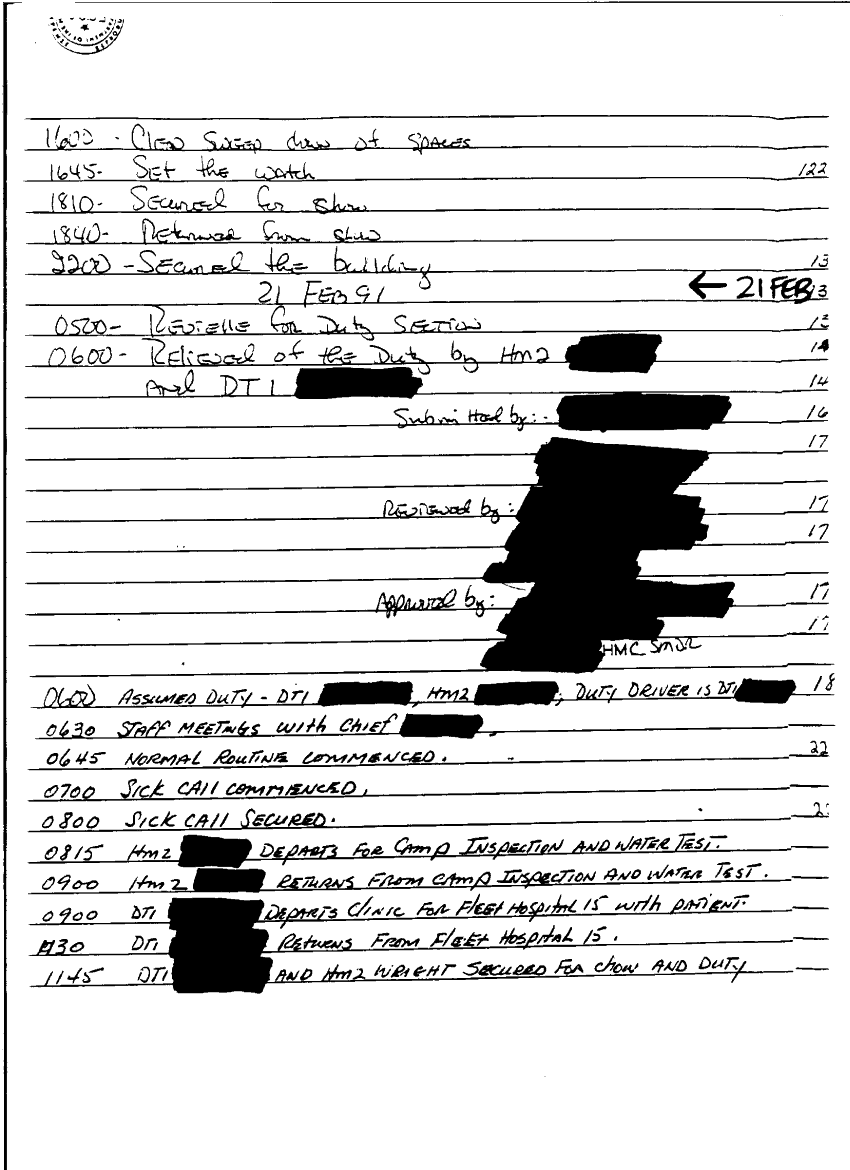 1600 - Clean Sweep down of spaces
1645- Set the watch 122
1810- Secured for chow
1840- Returned from chow
2200 - Secured the building 13
21 FEB 91 ← 21 FEB 13
0500- Reveille for Duty Section 13
0600- Relieved of the Duty by Hm2 14
And DT1 14
Submitted by: - 16
17
Reviewed by: 17
17
Approved by: 17
17
HMC SMDR
0600 ASSUMED DUTY - DT1 , Hm2 ; DUTY DRIVER IS DT1 18
0630 STAFF MEETINGS WITH CHIEF .
0645 NORMAL ROUTINE COMMENCED. 22
0700 SICK CALL COMMENCED.
0800 SICK CALL SECURED.
0815 Hm2 DEPARTS FOR CAMP INSPECTION AND WATER TEST.
0900 Hm2 RETURNS FROM CAMP INSPECTION AND WATER TEST.
0900 DT1 DEPARTS CLINIC FOR FLEET HOSPITAL 15 WITH PATIENT.
1130 DT1 RETURNS FROM FLEET HOSPITAL 15.
1145 DT1 AND Hm2 WRIGHT SECURED FOR CHOW AND DUTY